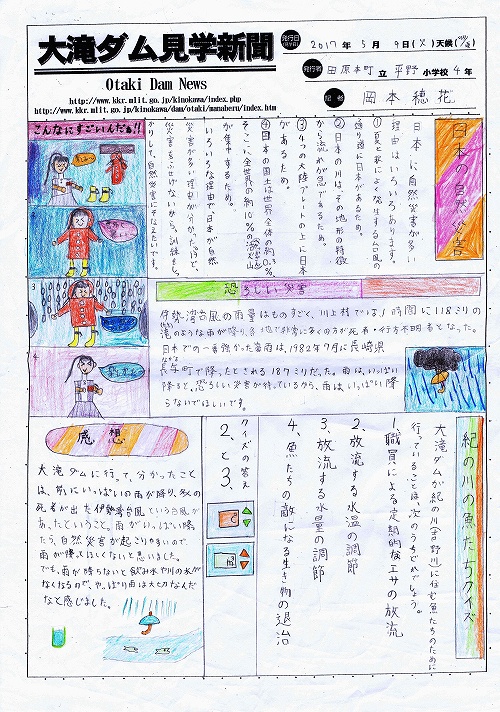 大滝ダム見学新聞
Otaki Dam News
http://www.kkr.mlit.go.jp/kinokawa/index.php
http://www.kkr.mlit.go.jp/kinokawa/dam/otaki/manaberu/index.htm
発行日
2017年5月9日(火)天候
発行者 田原本町立 平野小学校4年
記者 岡本穂花
日本の自然災害
日本に自然災害が多い
理由はいろいろあります。
①夏と秋によく発生する台風の
通り道に日本があるため。
②日本の川は、その地形の特徴
から流れが急であるため。
③4つの大陸プレートの上に日本
があるため。
④日本の国土は世界全体の約0.3%
そこへ全世界の約10%の活火山
が集中するため。
いろいろな理由で日本が自然
災害が多い理由が分かったけど、
災害をふせげないから、訓練をしっ
かりして、自然災害にそなえたいです。
こんなにすごいんだぁ!!
3
4
恐ろしい災害
伊勢湾台風の雨量はものすごく、川上村では1時間に118ミリの
滝のような雨が降り、各地で非常に多くの方が死者・行方不明者となった。
日本での一番強かった豪雨は、1982年7月に長崎県
長与町で降ったとされる187ミリだった。雨は、いっぱい
降ると、恐ろしい災害が待っているから、雨は、いっぱい降
らないでほしいです。
紀の川の魚たちクイズ
大滝ダムが紀の川(吉野川)に住む魚たちのために
行っていることは次のうちどれでしょう。
1、職員による定期的なエサの放流
2、放流する水温の調節
3、放流する水量の調節
4、魚たちの敵になる生き物の退治
クイズの答え
2、と3、
感想
大滝ダムに行って、分かったこと
は、急にいっぱいの雨が降り、多くの
死者が出た伊勢湾台風という台風が
あったということ。雨がいっぱい降っ
たら、自然災害が起こりやすいので、
雨が降ってほしくないと思いました。
でも、雨が降らないと飲み水や川の水が
なくなるので、やっぱり雨は大切なんだ
なと感じました。